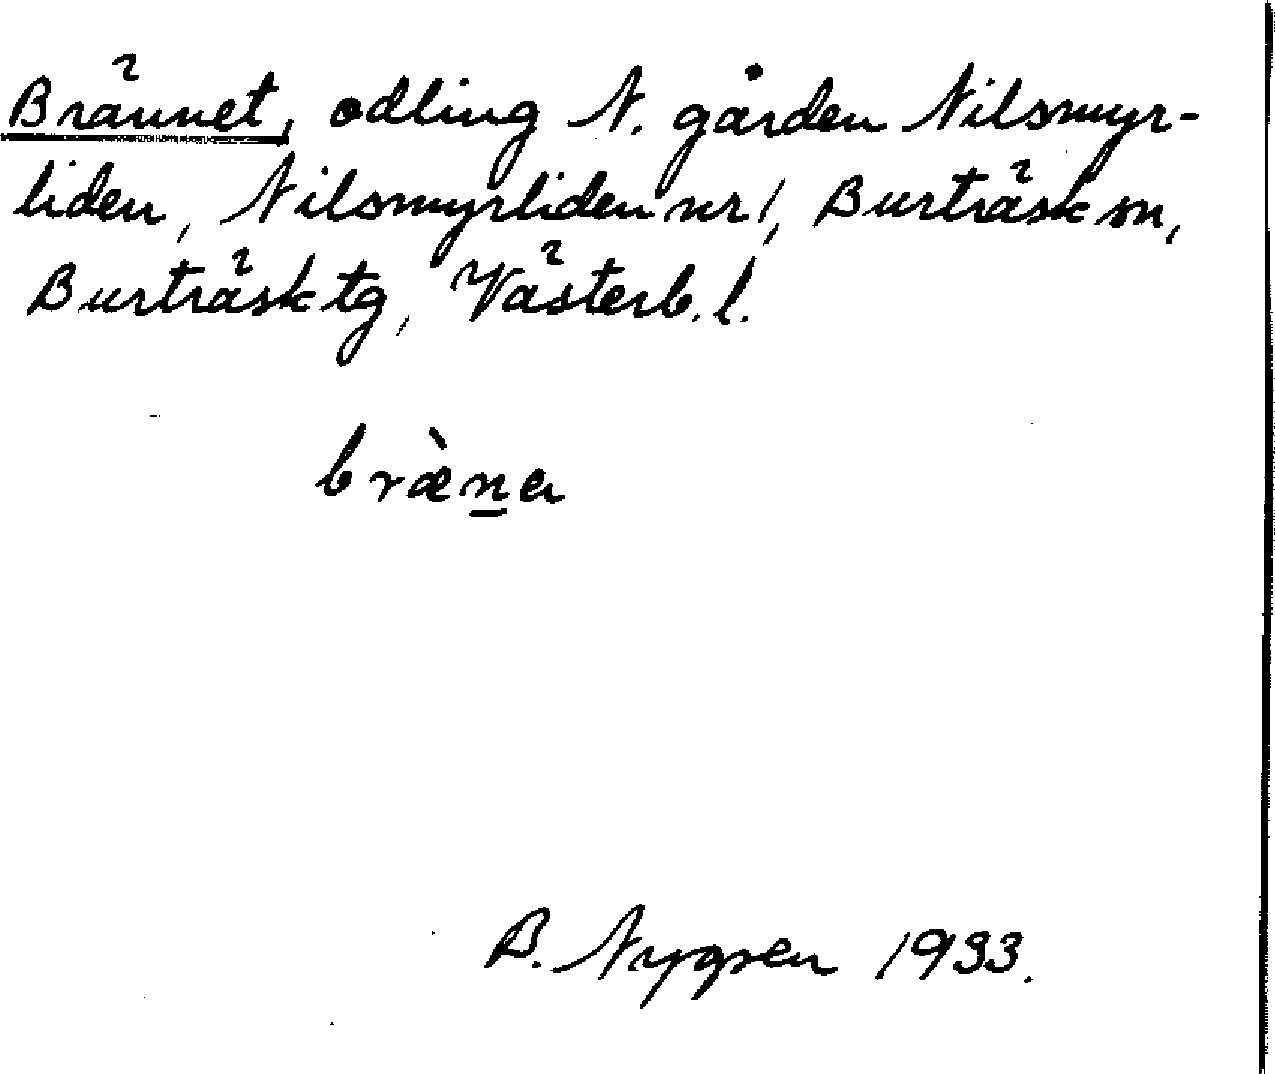 Brännet, odling N. gården Nilsmyr-
liden, Nilsmyrliden nr 1, Burträsk sn,
Burträsk tg, Västerb. l.
bræ̀n̲a
B. Nygren 1933.